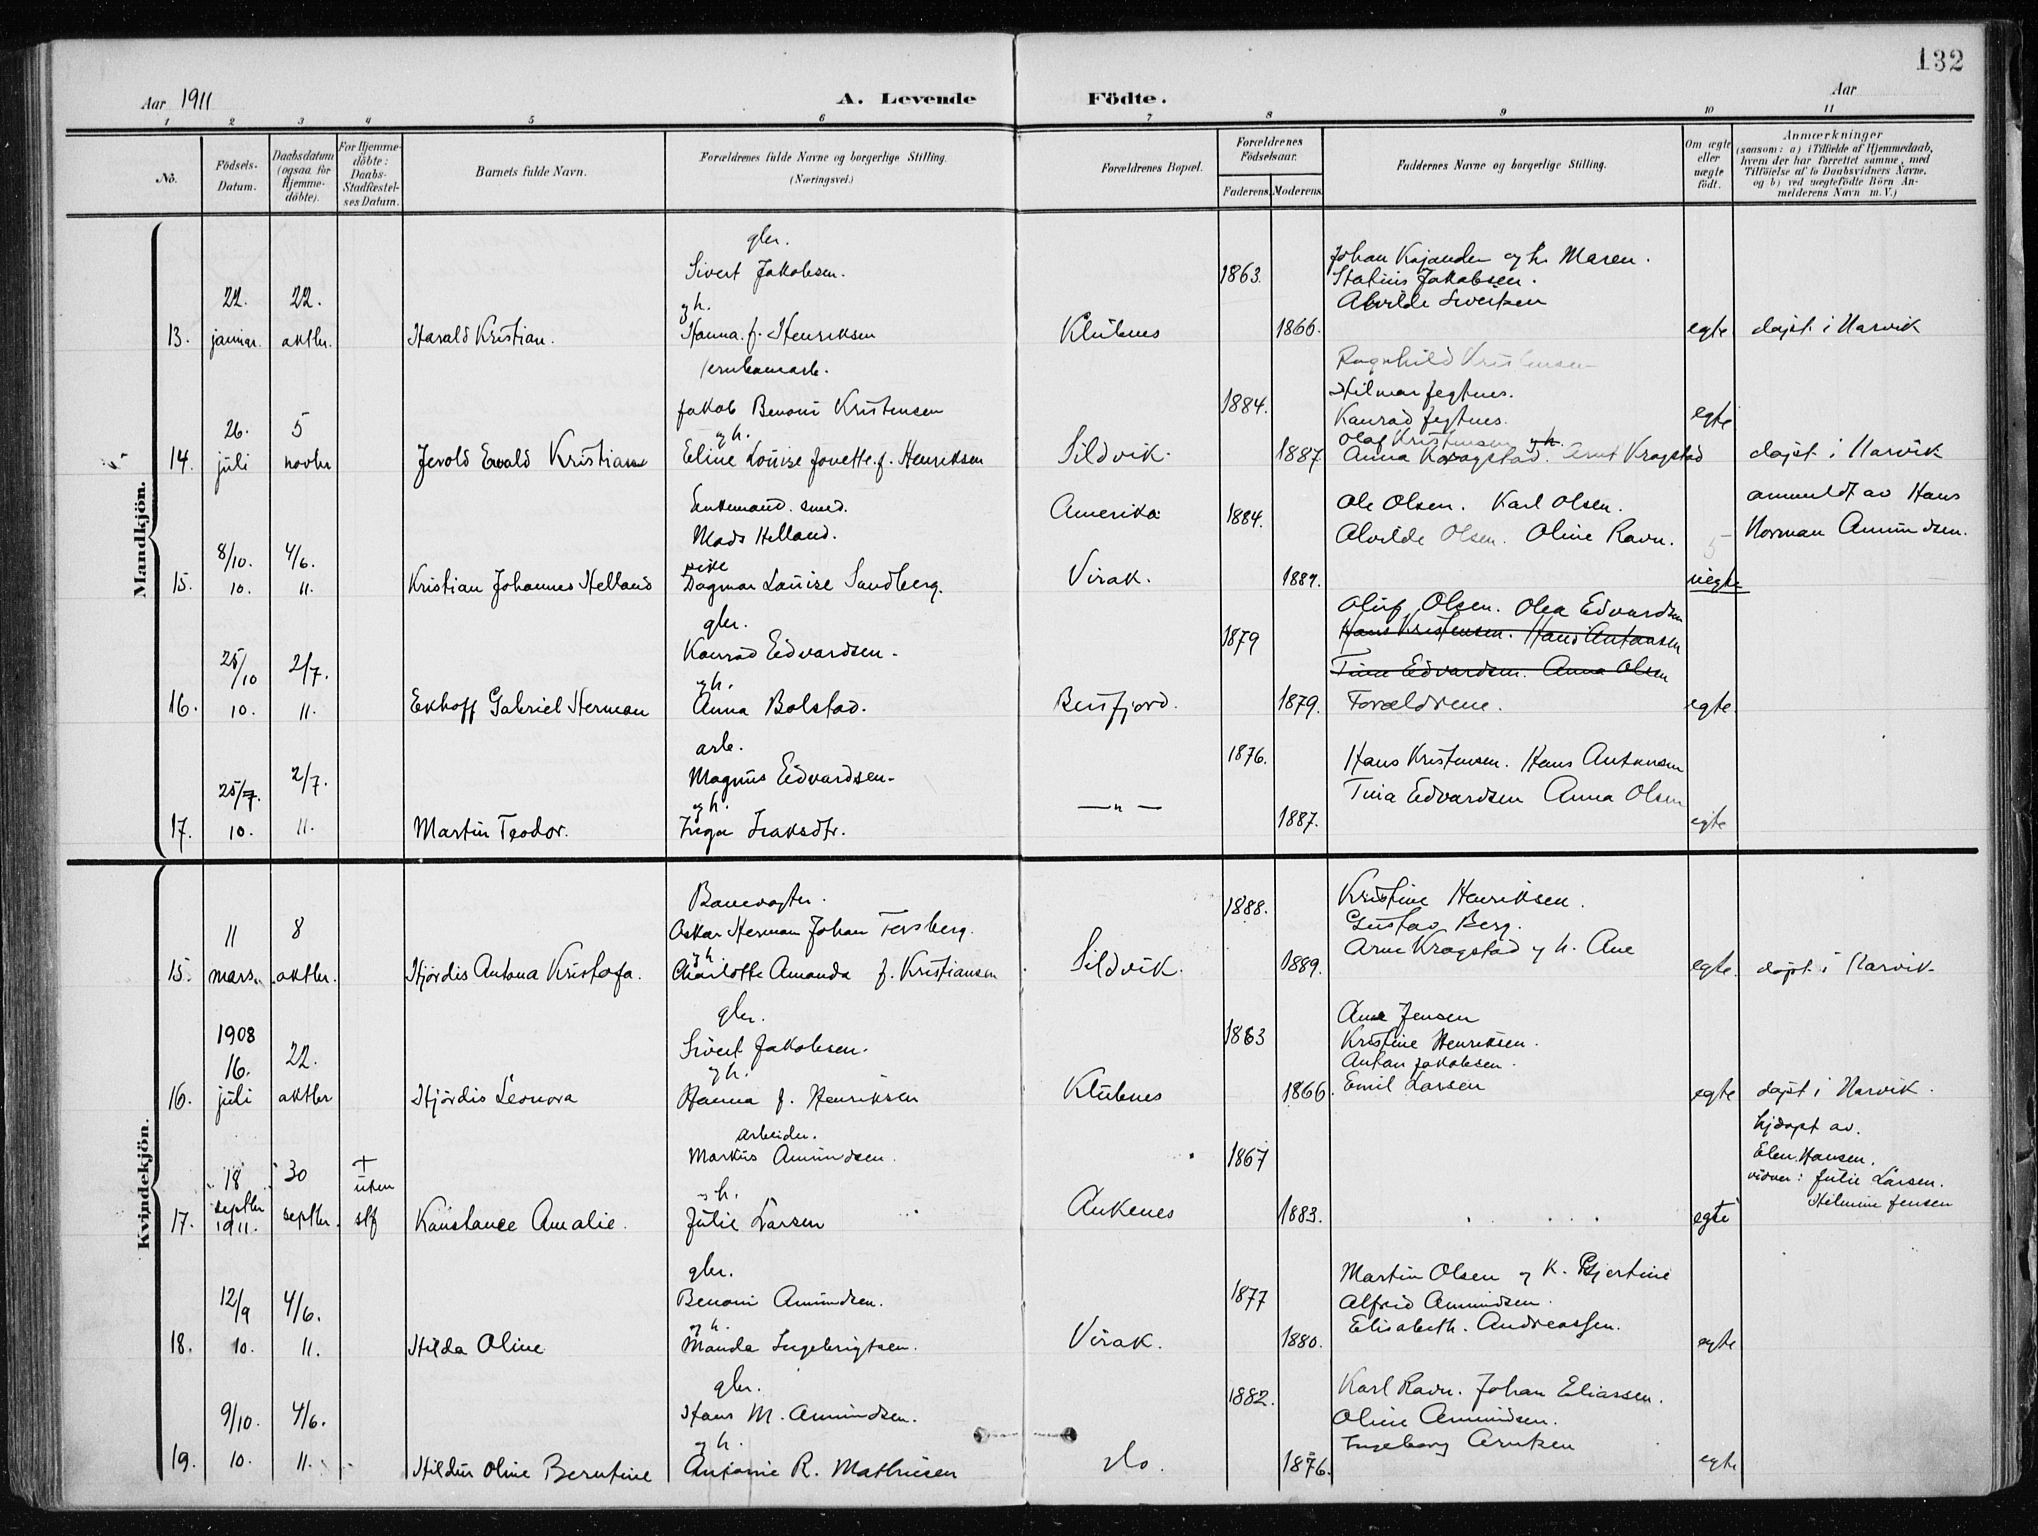 132
Aar 1911
A. Levende
Födte.
Aar
1 2 3 4 5 6 7 8 9 10 11
No.
Födsels-Datum.
Daabsdatum (ogsaa for Hjemme-döbte).
For Hjemme-döbte: Daabs-Stadfæstel-ses Datum.
Barnets fulde Navn.
Forældrenes fulde Navne og borgerlige Stilling.
(Næringsvei.)
Forældrenes Bopæl.
Forældrenes Födselsaar.
Faderens. Moderens.
Faddernes Navne og borgerlige Stilling.
Om ægte eller uægte födt.
Anmærkninger
(saasom: a) i Tilfælde af Hjemmedaab,
hvem der har forrettet samme, med
Tilföielse af to Daabsvidners Navne,
og b) ved uægtefödte Börn An-
melderens Navn m. V.)
Mandkjön.
gbr.
Sivert Jakobsen.
1863.
Johan Kajander og h. Maren.
Statius Jakobsen.
Alvilde Sivertsen
22. 22.
og h.
13. januar. oktbr. Harald Kristian. Hanna f. Henriksen Klubnes 1866. egte døpt i Narvik
jernbanearb.
Ragnhild Kristensen
Jakob Benoni Kristensen
1884.
Hilmar Jegtnes.
Konrad Jegtnes.
egte
26. 5
og h.
Olaf Kristensen og h.
14. juli novbr Jerold Ewald Kristian Eline Louise Jonette f. Henriksen Sildvik. 1887 Anna Kragstad. Arnt Kragstad døpt i Narvik
Enkemand. smed.
Mads Helland.
Amerika
1884.
Ole Olsen. Karl Olsen.
Alvilde Olsen. Oline Ravn.
anmeldt av Hans
Norman Amundsen.
8/10. 4/6.
pike
15. 10. 11. Kristian Johannes Helland Dagmar Louise Sandberg. Virak. 1887. uegte
gbr.
Konrad Edvardsen.
1879
Oluf Olsen. Olea Edvardsen
Hans Kristensen. Hans Antonsen
Tina Edvardsen. Anna Olsen
25/10 2/7.
og h.
16. 10. 11. Ekhoff Gabriel Herman Anna Bolstad. Beisfjord. 1879. Forældrene. egte
arb.
Magnus Edvardsen.
1876.
Hans Kristensen. Hans Antonsen
Tina Edvardsen Anna Olsen
25/7. 2/7.
og h. — " —
17. 10. 11. Martin Teodor. Inga Isaksdtr. 1887. egte
Kvindekjön.
Banevogter.
Oskar Herman Johan Forsberg.
1888.
Kristine Henriksen.
Gustav Berg.
Arne Kragstad og h. Ane
11 8
og h.
15. mars. oktbr. Hjördis Antona Kristofa. Charlotte Amanda f. Kristiansen Sildvik. 1889. egte. døpt i Narvik
gbr.
Sivert Jakobsen.
1863
Ane Jensen
Kristine Henriksen.
Anton Jakobsen.
Emil Larsen
1908
16. 22.
og h.
16. juli oktbr Hjördis Leonora Hanna f. Henriksen Klubnes 1866. egte døpt i Narvik.
arbeider.
Markus Amundsen.
1867
hjdøpt av.
Elen Hansen.
vidner: Julie Larsen.
Hilmine Jensen
18 30 + uten
og h.
17. septbr 1911. septbr. stf Konstance Amalie. Julie Larsen Ankenes 1883. egte
gbr.
Benoni Amundsen.
1877
Martin Olsen og K. Gjertine
Alfrid Amundsen.
Elisabeth. Andreassen.
12/9 4/6.
og h.
18. 10. 11. Hilda Oline Manda Ingebrigtsen. Virak. 1880. egte
gbr.
Hans M. Amundsen.
1882.
Karl Ravn. Johan Eliassen.
Oline Amundsen.
Ingeborg Arntsen
9/10. 4/6.
og h.
19. 10. 11. Hildur Oline Berntine Antonie R. Mathisen do. 1876. egte